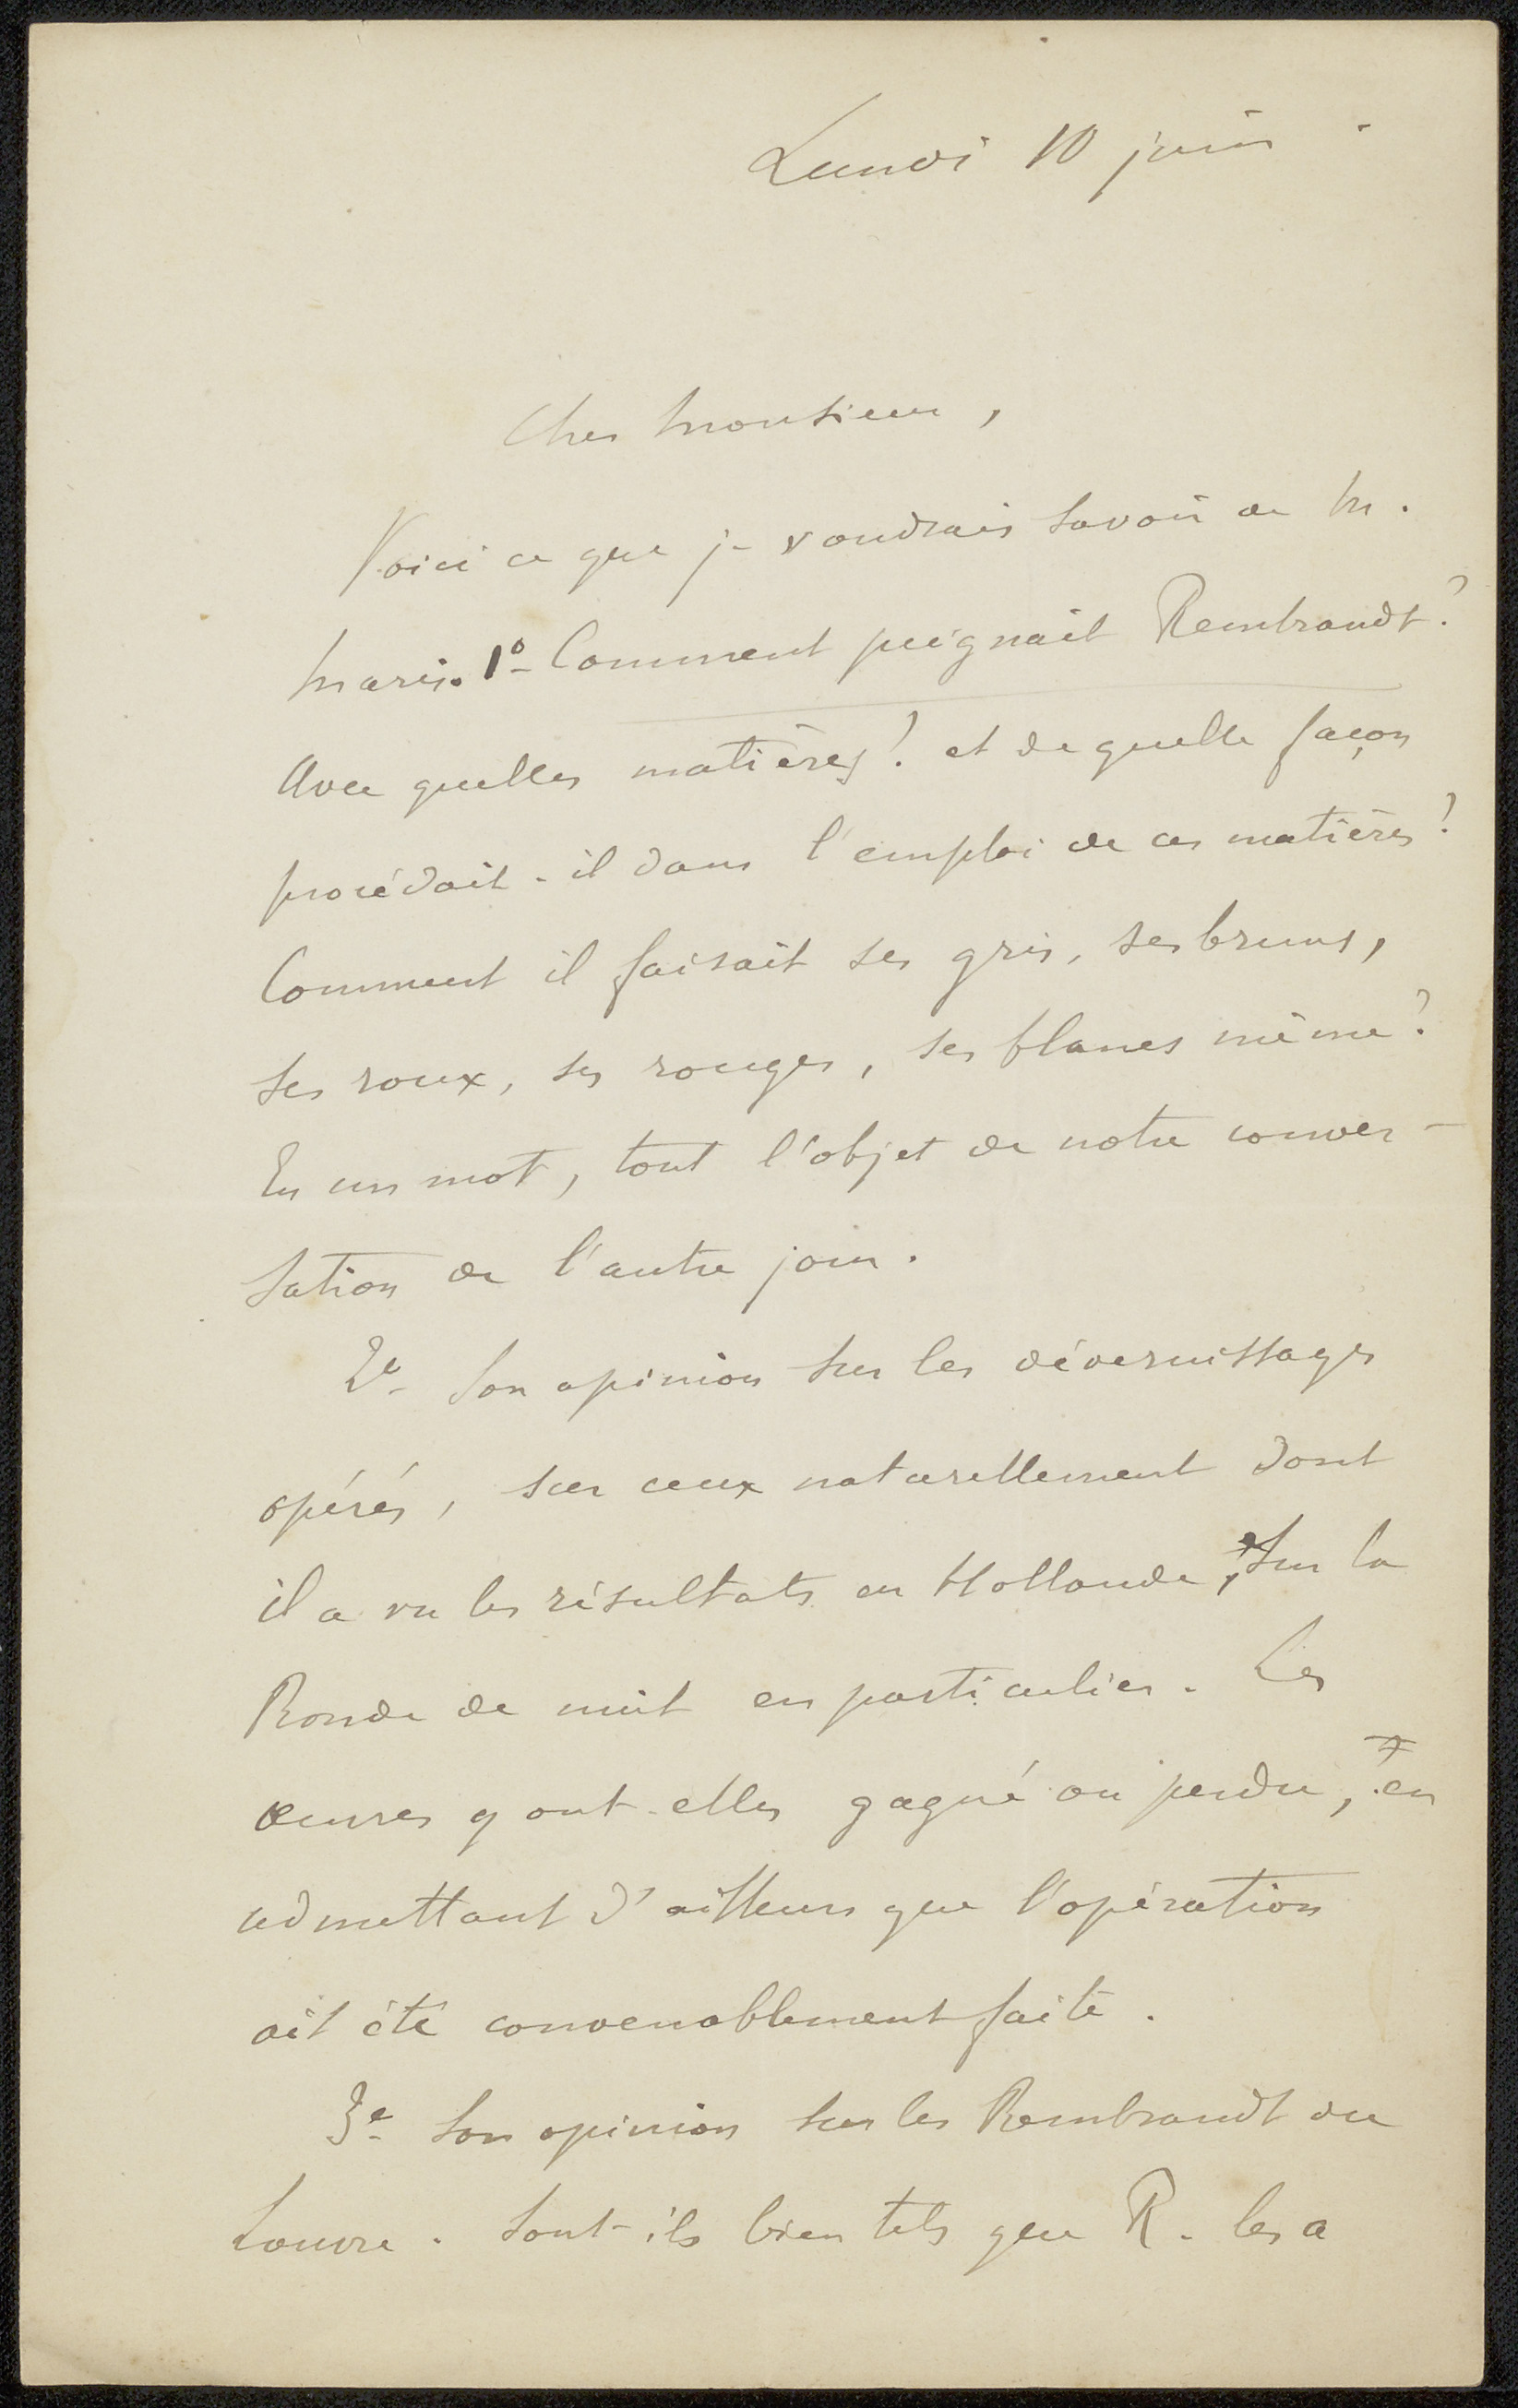 Lundi 10 juin
Cher Monsieur,
Voici ce que je voudrais savoir de M.
Maris. 1º- Comment peignait Rembrandt?
Avec quelles matières? et de quelle façon
procédait-il dans l'emploi de ces matières?
Comment il faisait ses gris, ses bruns,
ses roux, ses rouges, ses blancs même?
En un mot, tout l'objet de notre conver-
sation de l'autre jour.
2e- Son opinion sur les dévernissages
opérés, sur ceux naturellement dont
il a vu les résultats en Hollande, sur la
Ronde de nuit en particulier. Les
œuvres y ont-elles gagné ou perdu, en
admettant d'ailleurs que l'opération
ait été convenablement faite.
3e- Son opinion sur les Rembrandt du
Louvre. Sont-ils bien tels que R. les a